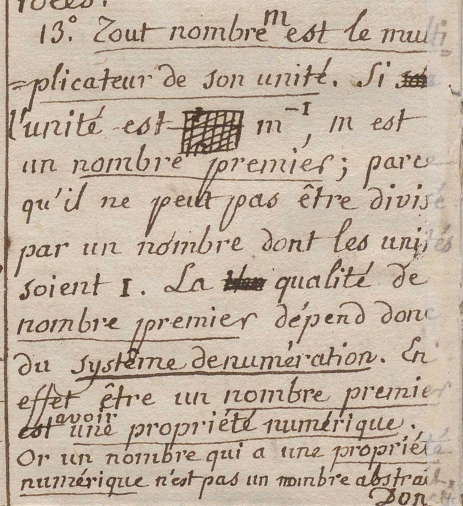 13.° Tout nombre m est le mul
=plicateur de son unité. Si
l'unité est m⁻¹, m est
un nombre premier; parce
qu'il ne peut pas être divisé
par un nombre dont les unités
soient 1. La qualité de
nombre premier dépend donc
du système de numération. En
effet être un nombre premier
est avoir une propriété numérique.
Or un nombre qui a une propriété
numérique n'est pas un nombre abstrait,
Don